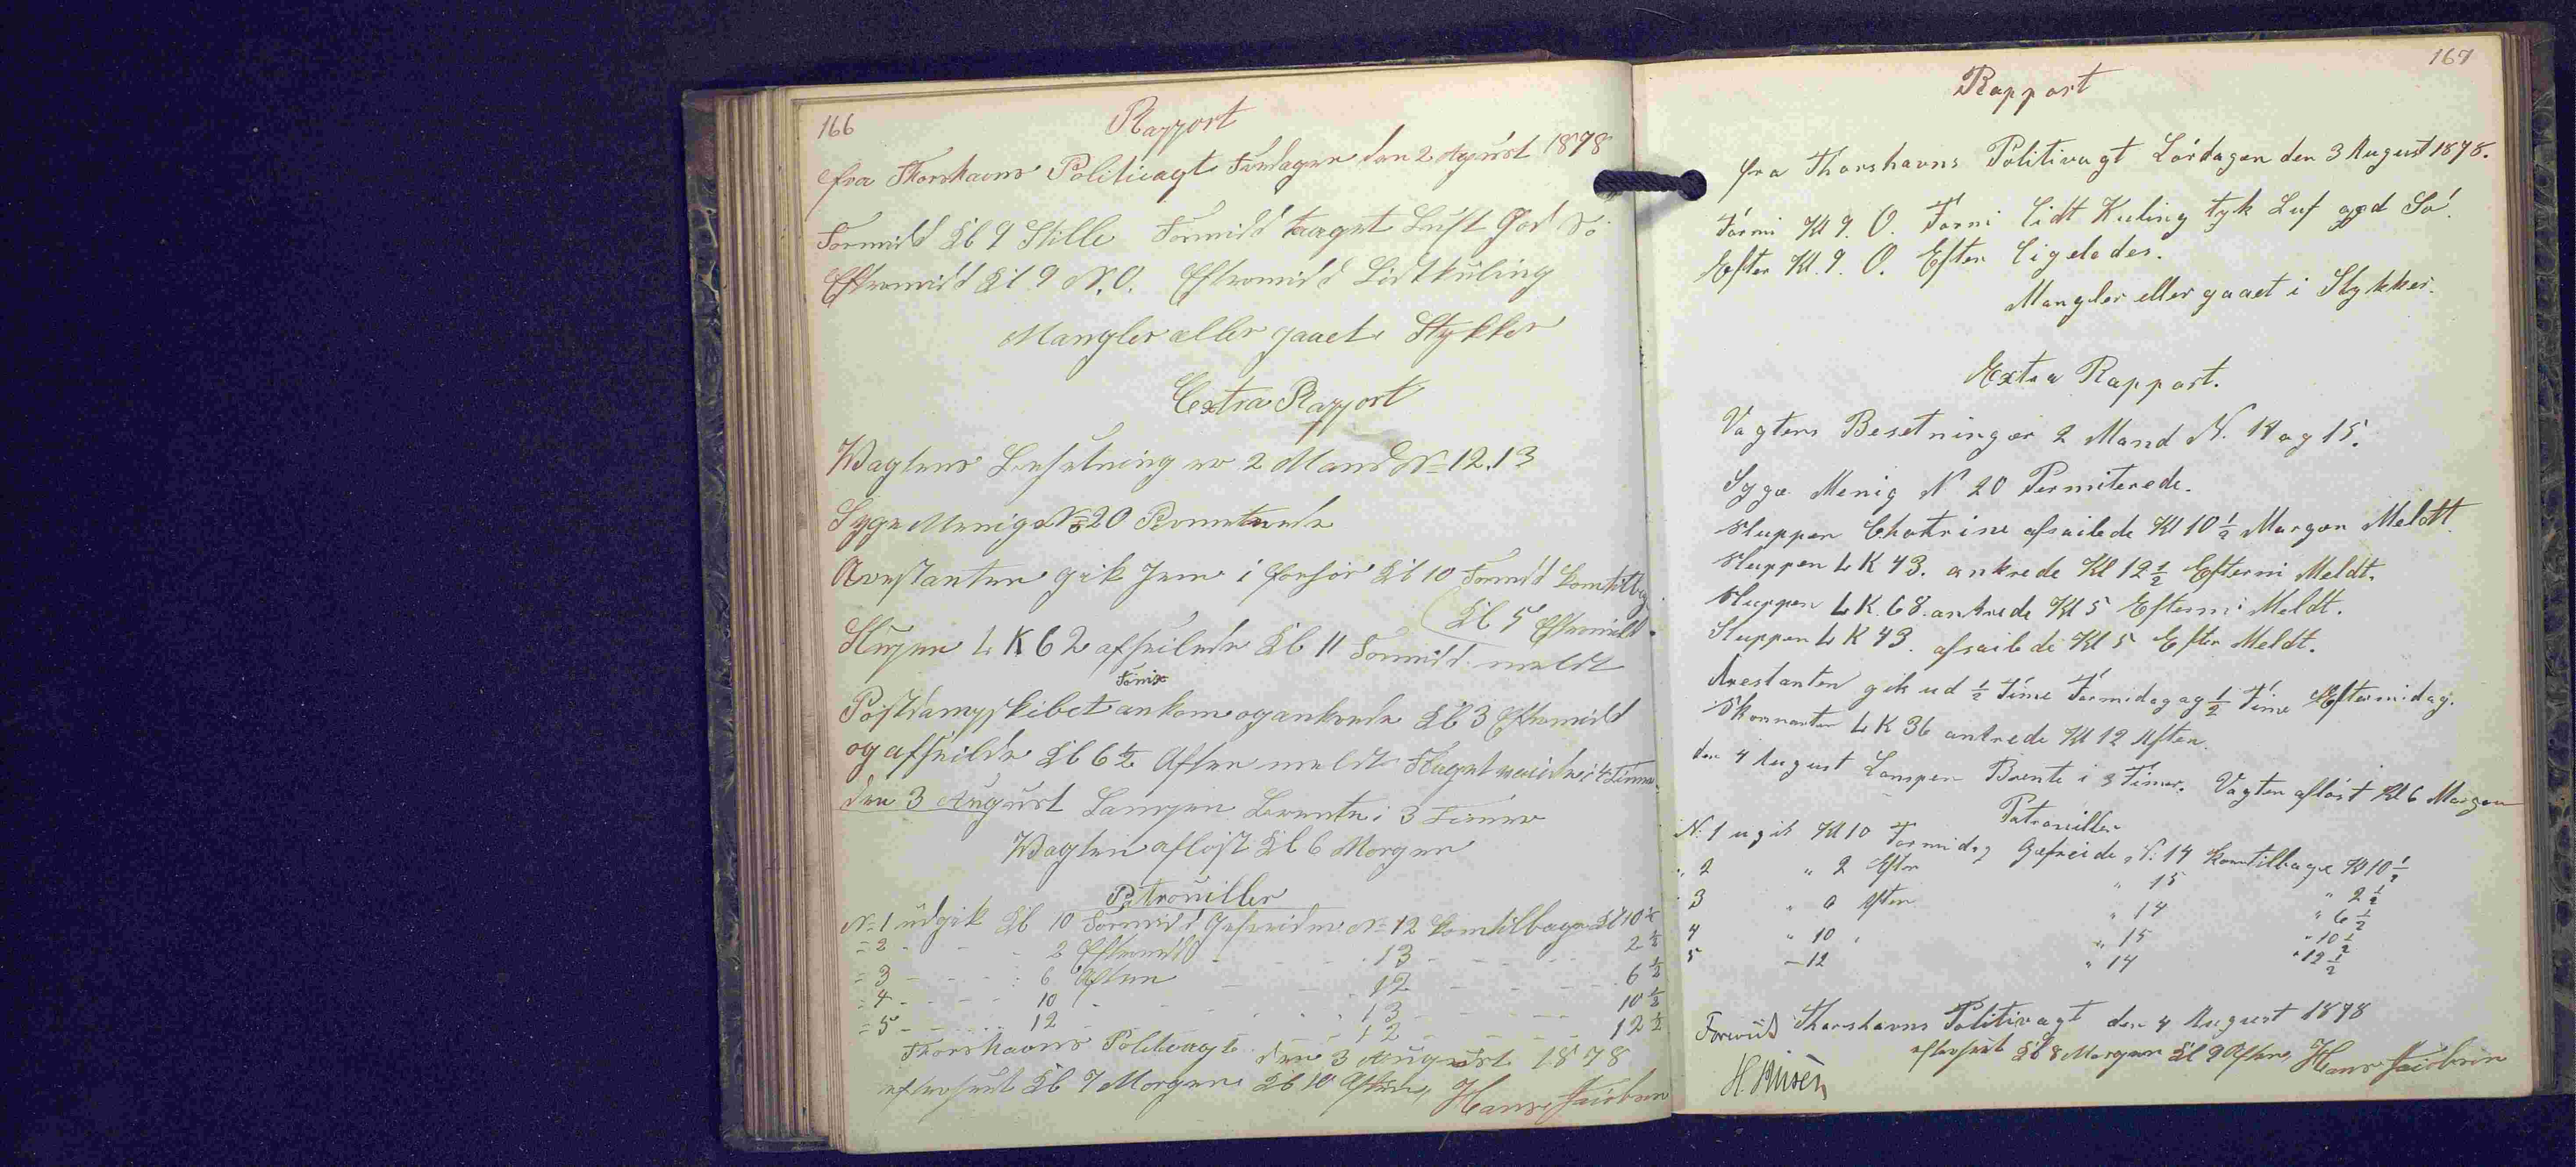 166
Rapport
fra Thorshavns Politivagt Fredagen den 2 August 1878
Formidd Kl 9 Stille Formidd taaget Luft God Sö
Eftermidd Kl 9 N.O. Eftermidd Lidt kuling
Mangler eller gaaet i Stykker
Extra Rapport
Wagtens Besetning er 2 Mand No 12.13
Syge Menige No 20 Permeterede
Arestanten gik frem i forhör Kl 10 Formidd kom tilbg
(Kl 5 Eftermidd.
Sluppen L K 62 afseilede Kl 11 Formidd meldt
Fönix
Postdampskibet ankom og ankrede Kl 3 Eftermidd
og afseilde Kl 6 1/2 Aften meldt Flaget vaiede i 4 Timer.
den 3 August Lampen Brente i 3 Timer
Wagten aflöst Kl 6 Morgen
Patrouiller
No 1 udgik Kl 10 Formidd Gefreider No 12 kom tilbage Kl 10 1/2
= 2 - - - 2 Eftermidd - - - 13 - - - 2 1/2
= 3 - - - 6 Aften - - - 12 - - - 6 1/2
= 4 - - - 10 - - - 13 - - - 10 1/2
= 5 - - - 12 - - - 12 - - - 12 1/2
Thorshavns Politivagt den 3 August 1878
efterseet Kl 7 Morgen Kl 10 Aften, Hans Jacobsen
167
Rapport
fra Thorshavns Politivagt Lördagen den 3 August 1878.
Formi Kl 9. O. Formi lidt Kuling tyk Luf god Sö.
Efter Kl. 9. O. Efter ligeledes.
Mangler eller gaaet i Stykker.
Extra Rapport.
Vagtens Besetning er 2 Mand N. 14 og 15.
Syge Menig N 20 Permiterede.
Sluppen Chatrine afsailede Kl 10 1/2 Morgen Meldt.
Sluppen L K 43. ankrede Kl 12 1/2 Eftermi Meldt.
Sluppen L K. 68. ankrede Kl 5 Eftermi Meldt.
Sluppen L K 43. afsailede Kl 5 Efter Meldt.
Arestanten gik ud 1/2 Time Formidag og 1/2 Time Eftermidag.
Skonnarten L K 36 ankrede Kl 12 Aften.
den 4 August Lampen Brente i 3 Timer. Vagten aflöst Kl 6 Morgen
Patrouiller
N. 1 ugik Kl 10 Formidag Gefreide N: 14 kom tilbage Kl 10 1/2
" 2 " 2 Aften " 15 " 2 1/2
3 " 6 Aften " 14 " 6 1/2
4 " 10 " " 15 " 10 1/2
5 - 12 " 14 " 12 1/2
Thorshavns Politivagt den 4 August 1878
Forevist
efterseet Kl 8 Morgen Kl 9 Aften, Hans Jacobsen